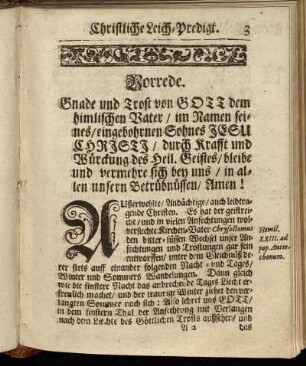 Christliche Leich-Predigt. 3
Vorrede.
Gnade und Trost von GOTT dem
himlischen Vater / im Namen sei-
nes / eingebohrnen Sohnes JESU
CHRISTI / durch Krafft und
Würckung des Heil. Geistes / bleibe
und vermehre sich bey uns / in al-
len unsern Betrübnüssen / Amen !
AUßerwehlte / Andächtige / auch leidtra-
gende Christen. Es hat der geistrei-
che / und in vielen Anfechtungen wol-
versuchte Kirchen-Vater Chrysostomus
den bitter-süssen Wechsel unser An-
fechtungen und Tröstungen gar fein
entworffen / unter dem Gleichnüß de-
rer stets auff einander folgenden Nacht- und Tages /
Winter und Sommers Wandelungen. Dann gleich
wie die finstere Nacht das anbrechende Tages Liecht er-
freulich machet / und der traurige Winter ziehet den ver-
langten Sommer nach sich : Also lehret uns GOTT /
in dem finstern Thal der Anfechtung mit Verlangen
nach dem Liechte des Göttlichen Trosts auffsehen / und
Homil.
LXIII. ad
pop. Antio-
chenum.
A 2 das